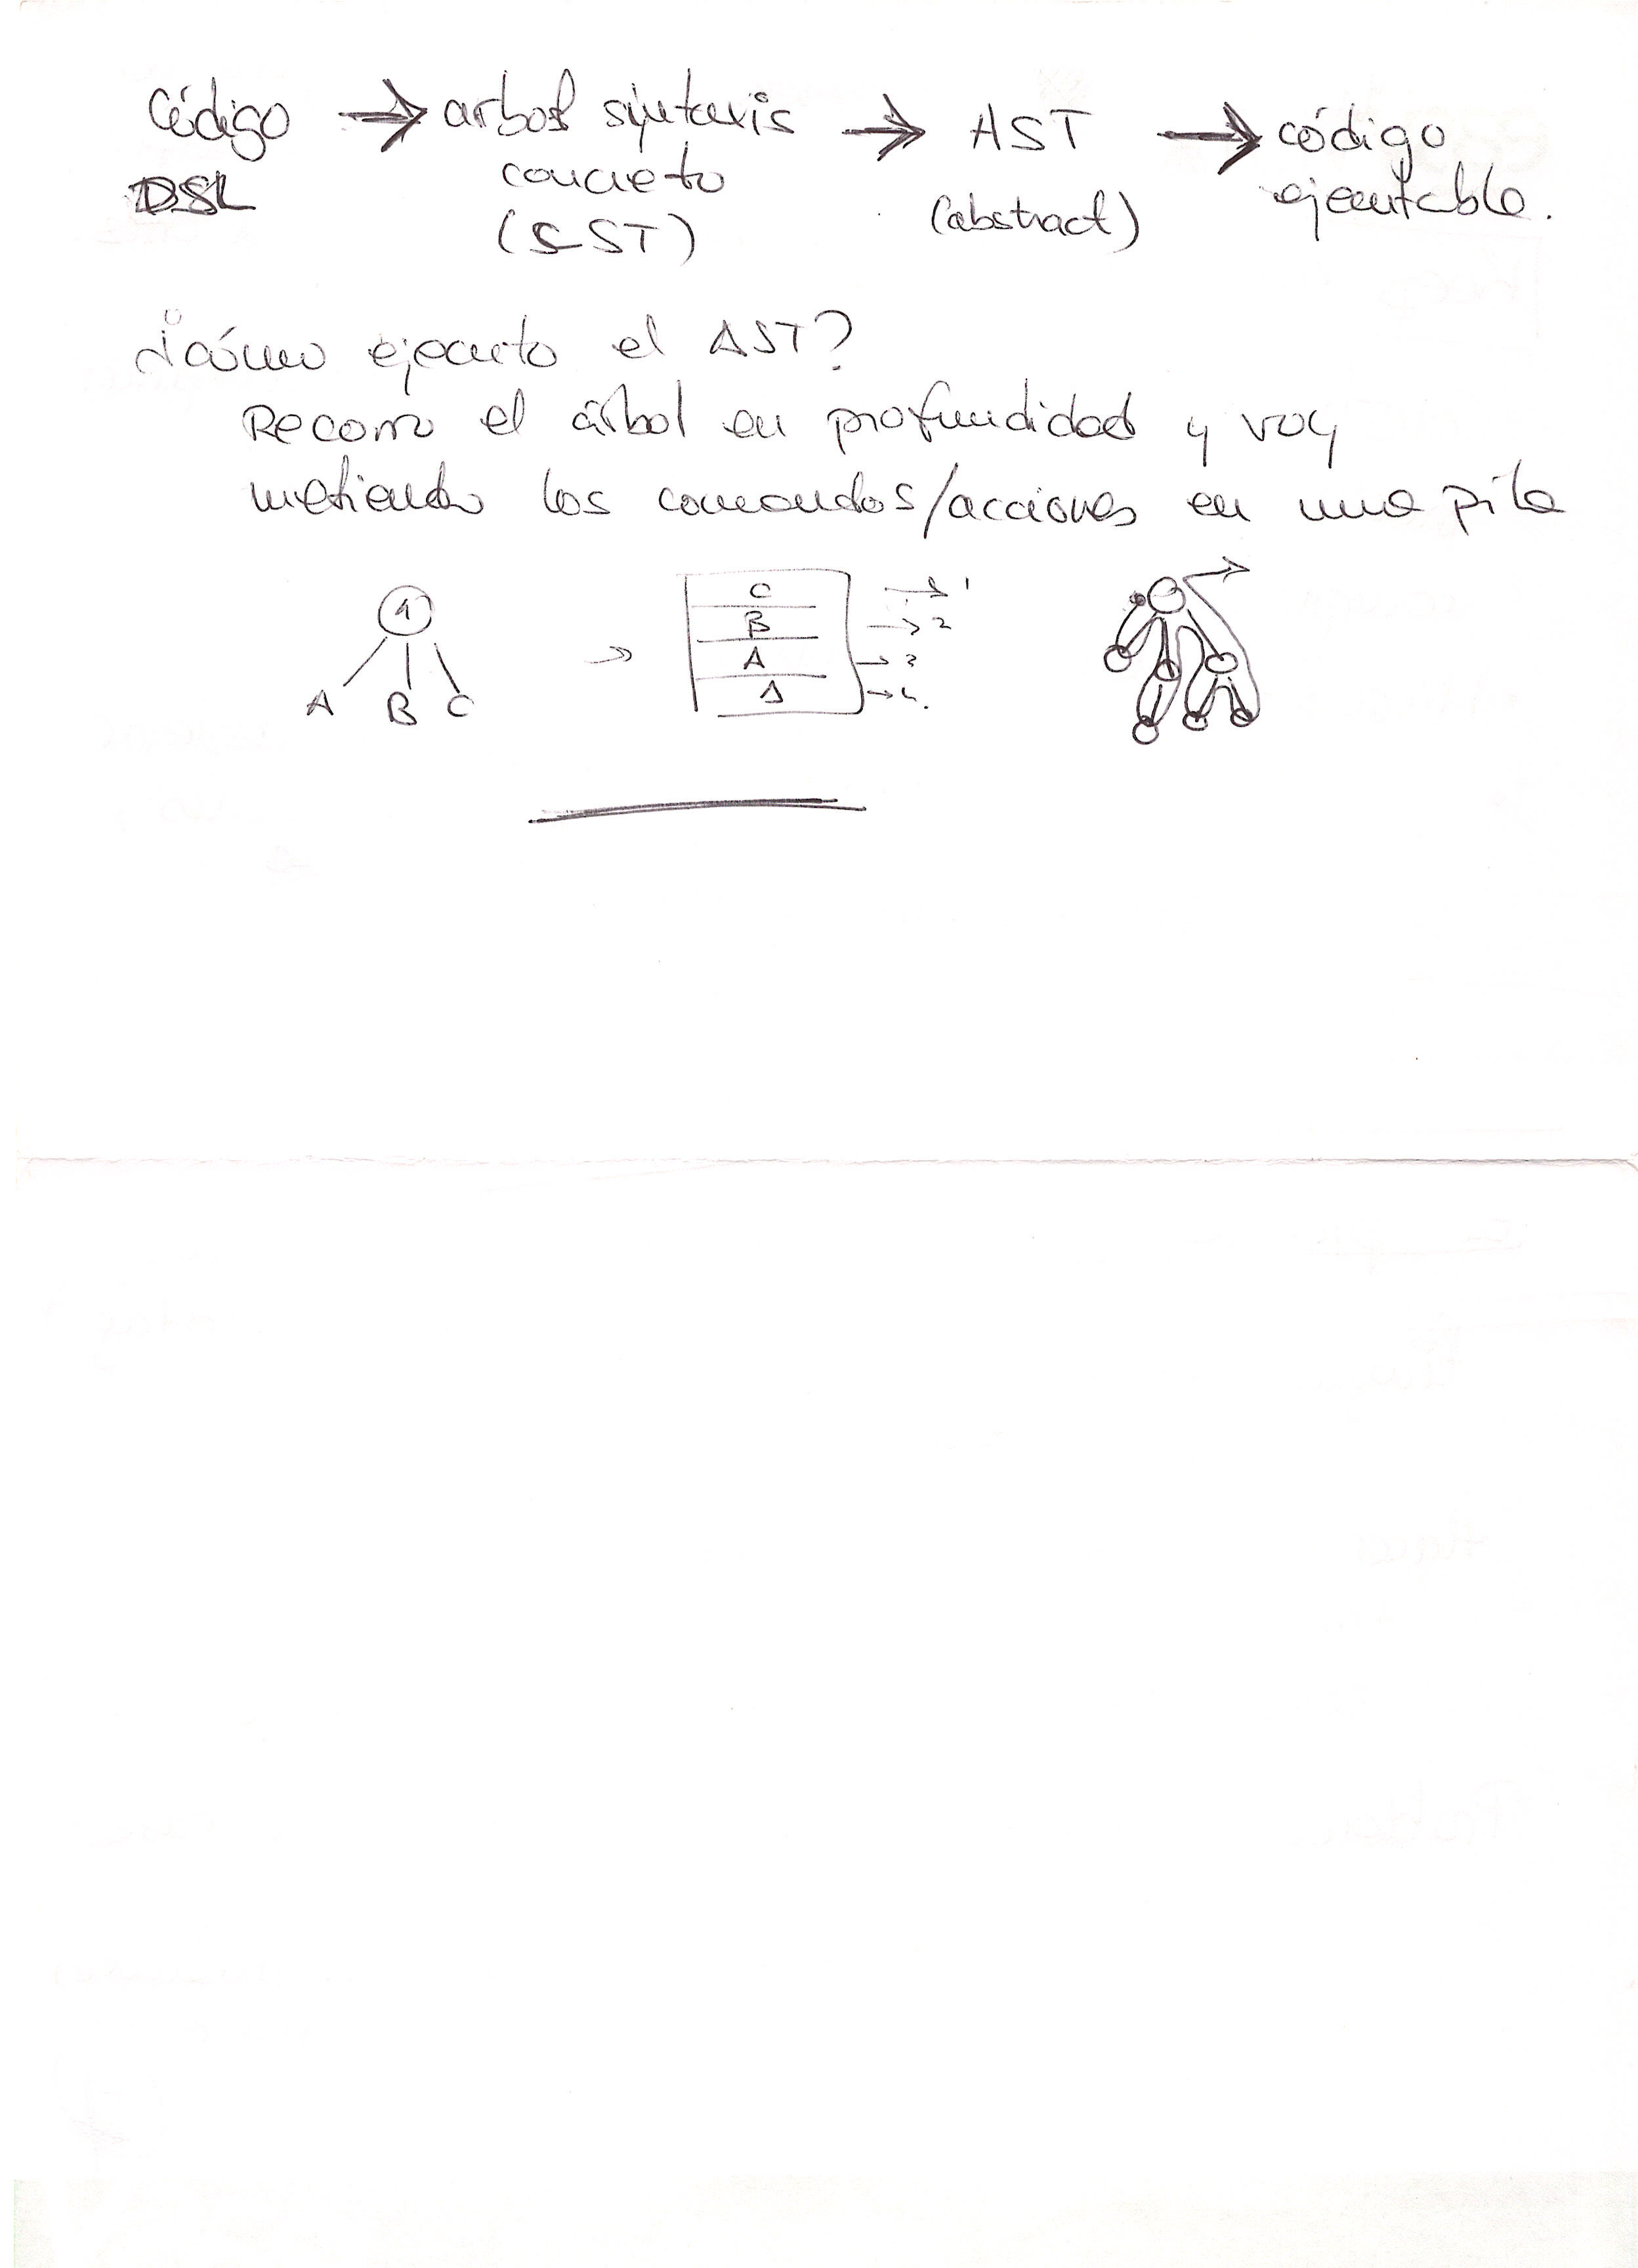 Código → arbol sintaxis → AST → código
DSL concreto (abstract) ejecutable.
(CST)
¿cómo ejecuto el AST?
Recorro el árbol en profundidad y voy
metiendo los comandos/acciones en una pila
1
A B C
→
C → 1
B → 2
A → 3
1 → 4.